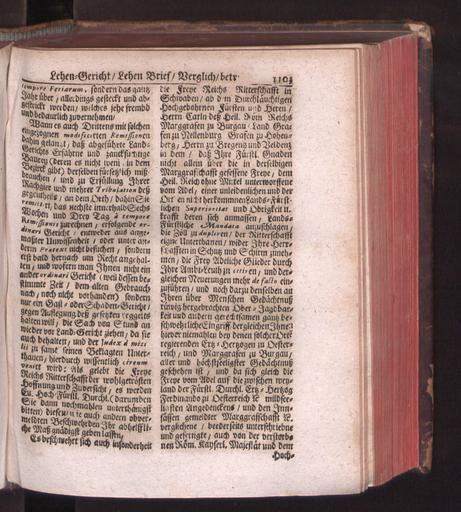 Lehen-Gericht/ Lehen Brief/ Verglich/ betr
1103
tempore Feriarum, sondern das gantz
Jahr über/ allerdings gesteckt und ab-
gestrickt werden/ welches sehr frembd
und bedaurlich zuvernehmen/
Wann es auch Drittens mit solchen
eingezognen modificierten Remissionen
dahin gelangt, daß abgeführte Land-
Gerichts Erfahrne und zancksüchtige
Bauren (deren es nicht wenig in dem
Bezirck gibt) derselben fürsetzlich miß-
brauchen/ und zu Erfüllung Ihrer
Rachgier und mehrer Tribulation deß
gegentheils/ an dem Orth/ dahin Sie
remittirt, das nechste innerhalb Sechs
Wochen und Drey Tag à tempore
Remissionis zurechnen/ erfolgende or-
dinari Gericht/ entweder auß ange-
maßter Unwissenheit/ oder unter an-
derm Prætext nicht besuchen/ sondern
erst bald hernach um Recht angehal-
ten/ und wofern man Ihnen nicht ein
ander ordinari Gericht (weil dessen be-
stimmte Zeit/ dem alten Gebrauch
nach/ noch nicht vorhanden) sondern
nur ein Gast- oder Schaden-Gericht/
gegen Außlegung deß gesetzten
halten will/ die Sach von Stund an
wieder vor Land-Gericht ziehen/ da sie
auch behalten/ und der Judex à miti
zu samt seinen Beklagten Unter-
thanen/ hierdurch wissentlich circum
venirt wird: Als gelebt die Freye
Reichs Ritterschafft der wohlgetrösten
Hoffnung und Zuversicht/ es werden
Eu. Hoch-Fürstl. Durchl. (darumben
Sie dann nochmahlen unterthänigst
bitten) diesem wie auch andern obver-
meldten Beschwehrden Ihr abhelffli-
che Maß gnädigst geben lassen/
Es beschwehrt sich auch insonderheit
die Freye Reichs Ritterschafft in
Schwaben/ ab dem Durchläuchtigen
Hochgebohrnen Fürsten und Herrn/
Herrn Carln deß Heil. Röm Reichs
Marggrafen zu Burgau/ Land Gra-
fen zu Nellenburg/ Grafen zu Hohen-
berg/ Herrn zu Bregentz und Veldentz
in dem/ daß Ihre Fürstl. Gnaden
nicht allein über die in derselbigen
Marggrafschafft gesessene Freye/ dem
Heil. Reich ohne Mittel unterworffene
vom Adel/ einer unleidentlichen und der
Ort en nicht herkommen Lands-Fürst-
lichen Superiorität und Obrigkeit
krafft deren sich anmassen/ Lands-
Fürstliche Mandata anzuschlagen/
die Zöll zu dupliren/ der Ritterschafft
eigne Unterthanen/ wider Ihre Herr-
schafften in Schutz und Schirm zuneh-
men/ die Frey Adeliche Glieder durch
Ihre Ambt-Leuth zu citiren/ und der-
gleichen Neuerungen mehr de facto ein-
zuführen/ und noch darzu denselben an
Ihren über Menschen Gedächtnuß
ruhwig hergebrachten Ober-Jagdbar-
keiten und andern gerechtsamen gantz be-
schwehrliche Eingriff dergleichen Ihnen
hiervor niemahlen bey denen solcher Ort
regierenden Ertz-Hertzogen zu Oester-
reich/ und Marggrafen zu Burgau/
aller und höchstseeligster Gedächtnuß
geschehen ist/ und da sich gleich die
Freye vom Adel auß die zwischen wey-
land der Fürstl. Durchl. Ertz-Hertzog
Ferdinands zu Oesterreich ꝛc mildsee-
ligsten Angedenckens/ und den Inn-
sassen gemeldter Marggrafschafft ꝛc.
vergliechene/ beederseits unterschriebene
und gefertigte/ auch von der verstorb-
nen Röm. Kayserl. Majestät und dem
Hoch-